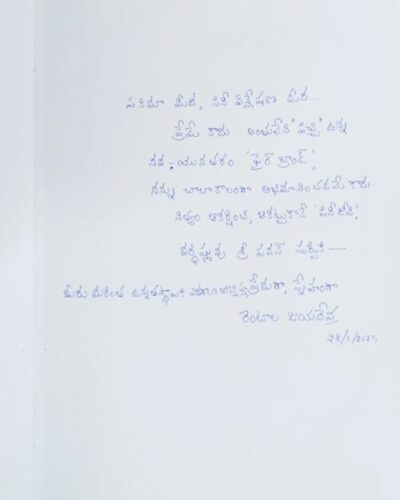 సినిమా మీద, సినీ విశ్లేషణ మీద...
ప్రేమే కాదు - అంతులేని 'పిచ్చి' ఉన్న
నవ - యువతరం 'ఫైర్ బ్రాండ్',
నన్ను చాలాకాలంగా అభిమానించడమే కాదు..
నిత్యం ఆకర్షించే, ఆకట్టుకొనే 'సినీజీవి',
వర్ధిష్ణువు శ్రీ పవన్ —
మీరు మరింత ఉన్నతస్థాయికి ఎదగాలని ఆకాంక్షిస్తూ, ప్రేమగా, స్నేహంగా
రెంటాల జయదేవ
28/1/2025